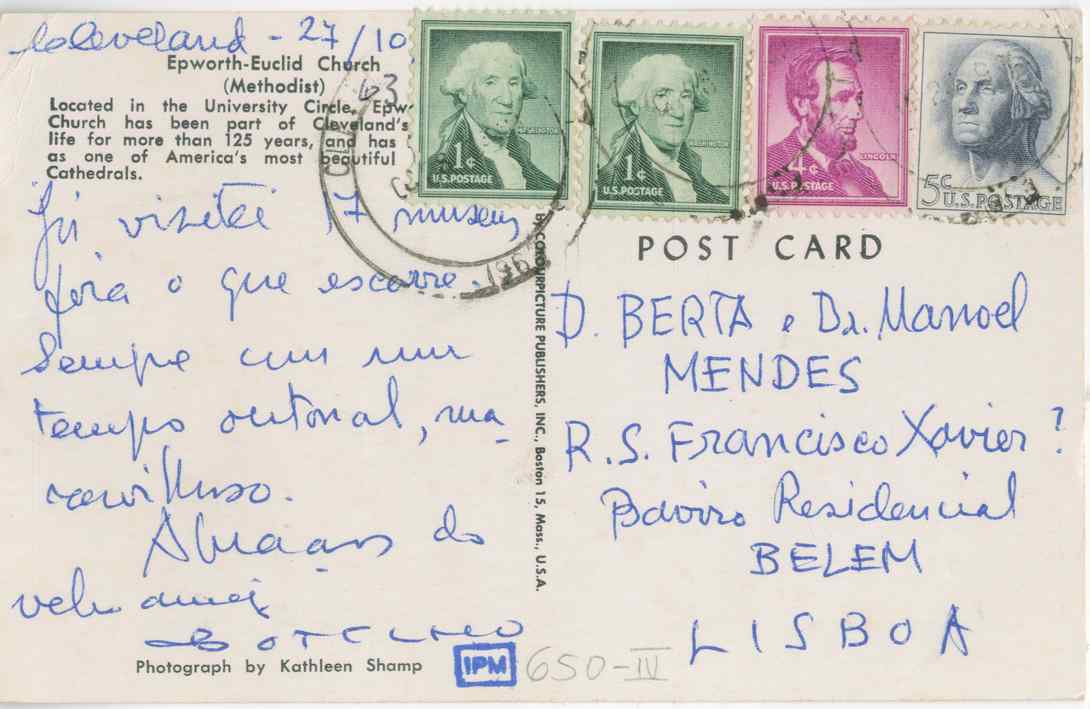 Cleveland - 27/10
63
Epworth-Euclid Church
(Methodist)
Located in the University Circle, Epw
Church has been part of Cleveland's
life for more than 125 years, and has
as one of America's most beautiful
Cathedrals.
Já visitei 7 museus
fora o que escorre.
Sempre com um
tempo outonal, ma-
ravilhoso.
Abraços do
velho amigo
BOTELHO
Photograph by Kathleen Shamp
BY COLOURPICTURE PUBLISHERS, INC., Boston 15, Mass., U.S.A.
WASHINGTON
1¢
U.S. POSTAGE
WASHINGTON
1¢
U.S. POSTAGE
LINCOLN
4¢
U.S. POSTAGE
5¢
U.S. POSTAGE
196
POST CARD
D. BERTA e Dr. Manoel
MENDES
R. S. Francisco Xavier?
Bairro Residencial
BELEM
LISBOA
IPM
650-IV